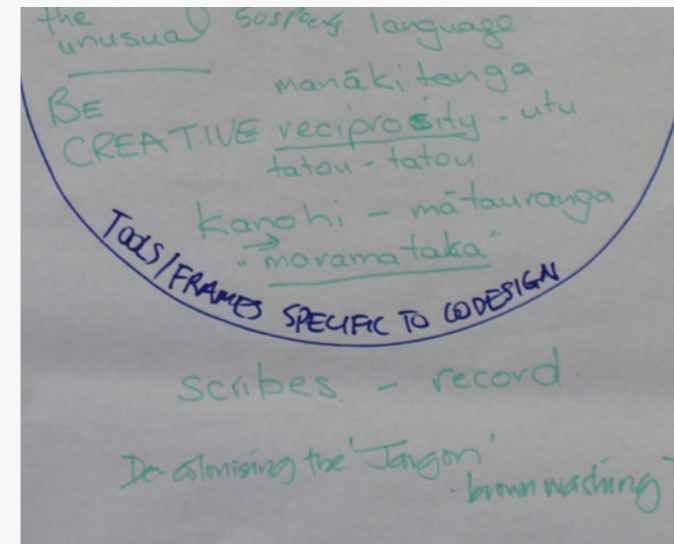 the
unusual suspects language
manākitanga
BE
CREATIVE reciprosity - utu
tatou - tatou
kanohi - mātauranga
→
"maramataka"
TOOLS/FRAMES SPECIFIC TO CODESIGN
scribes. - record.
De-colonising the 'Jargon'
- brown washing